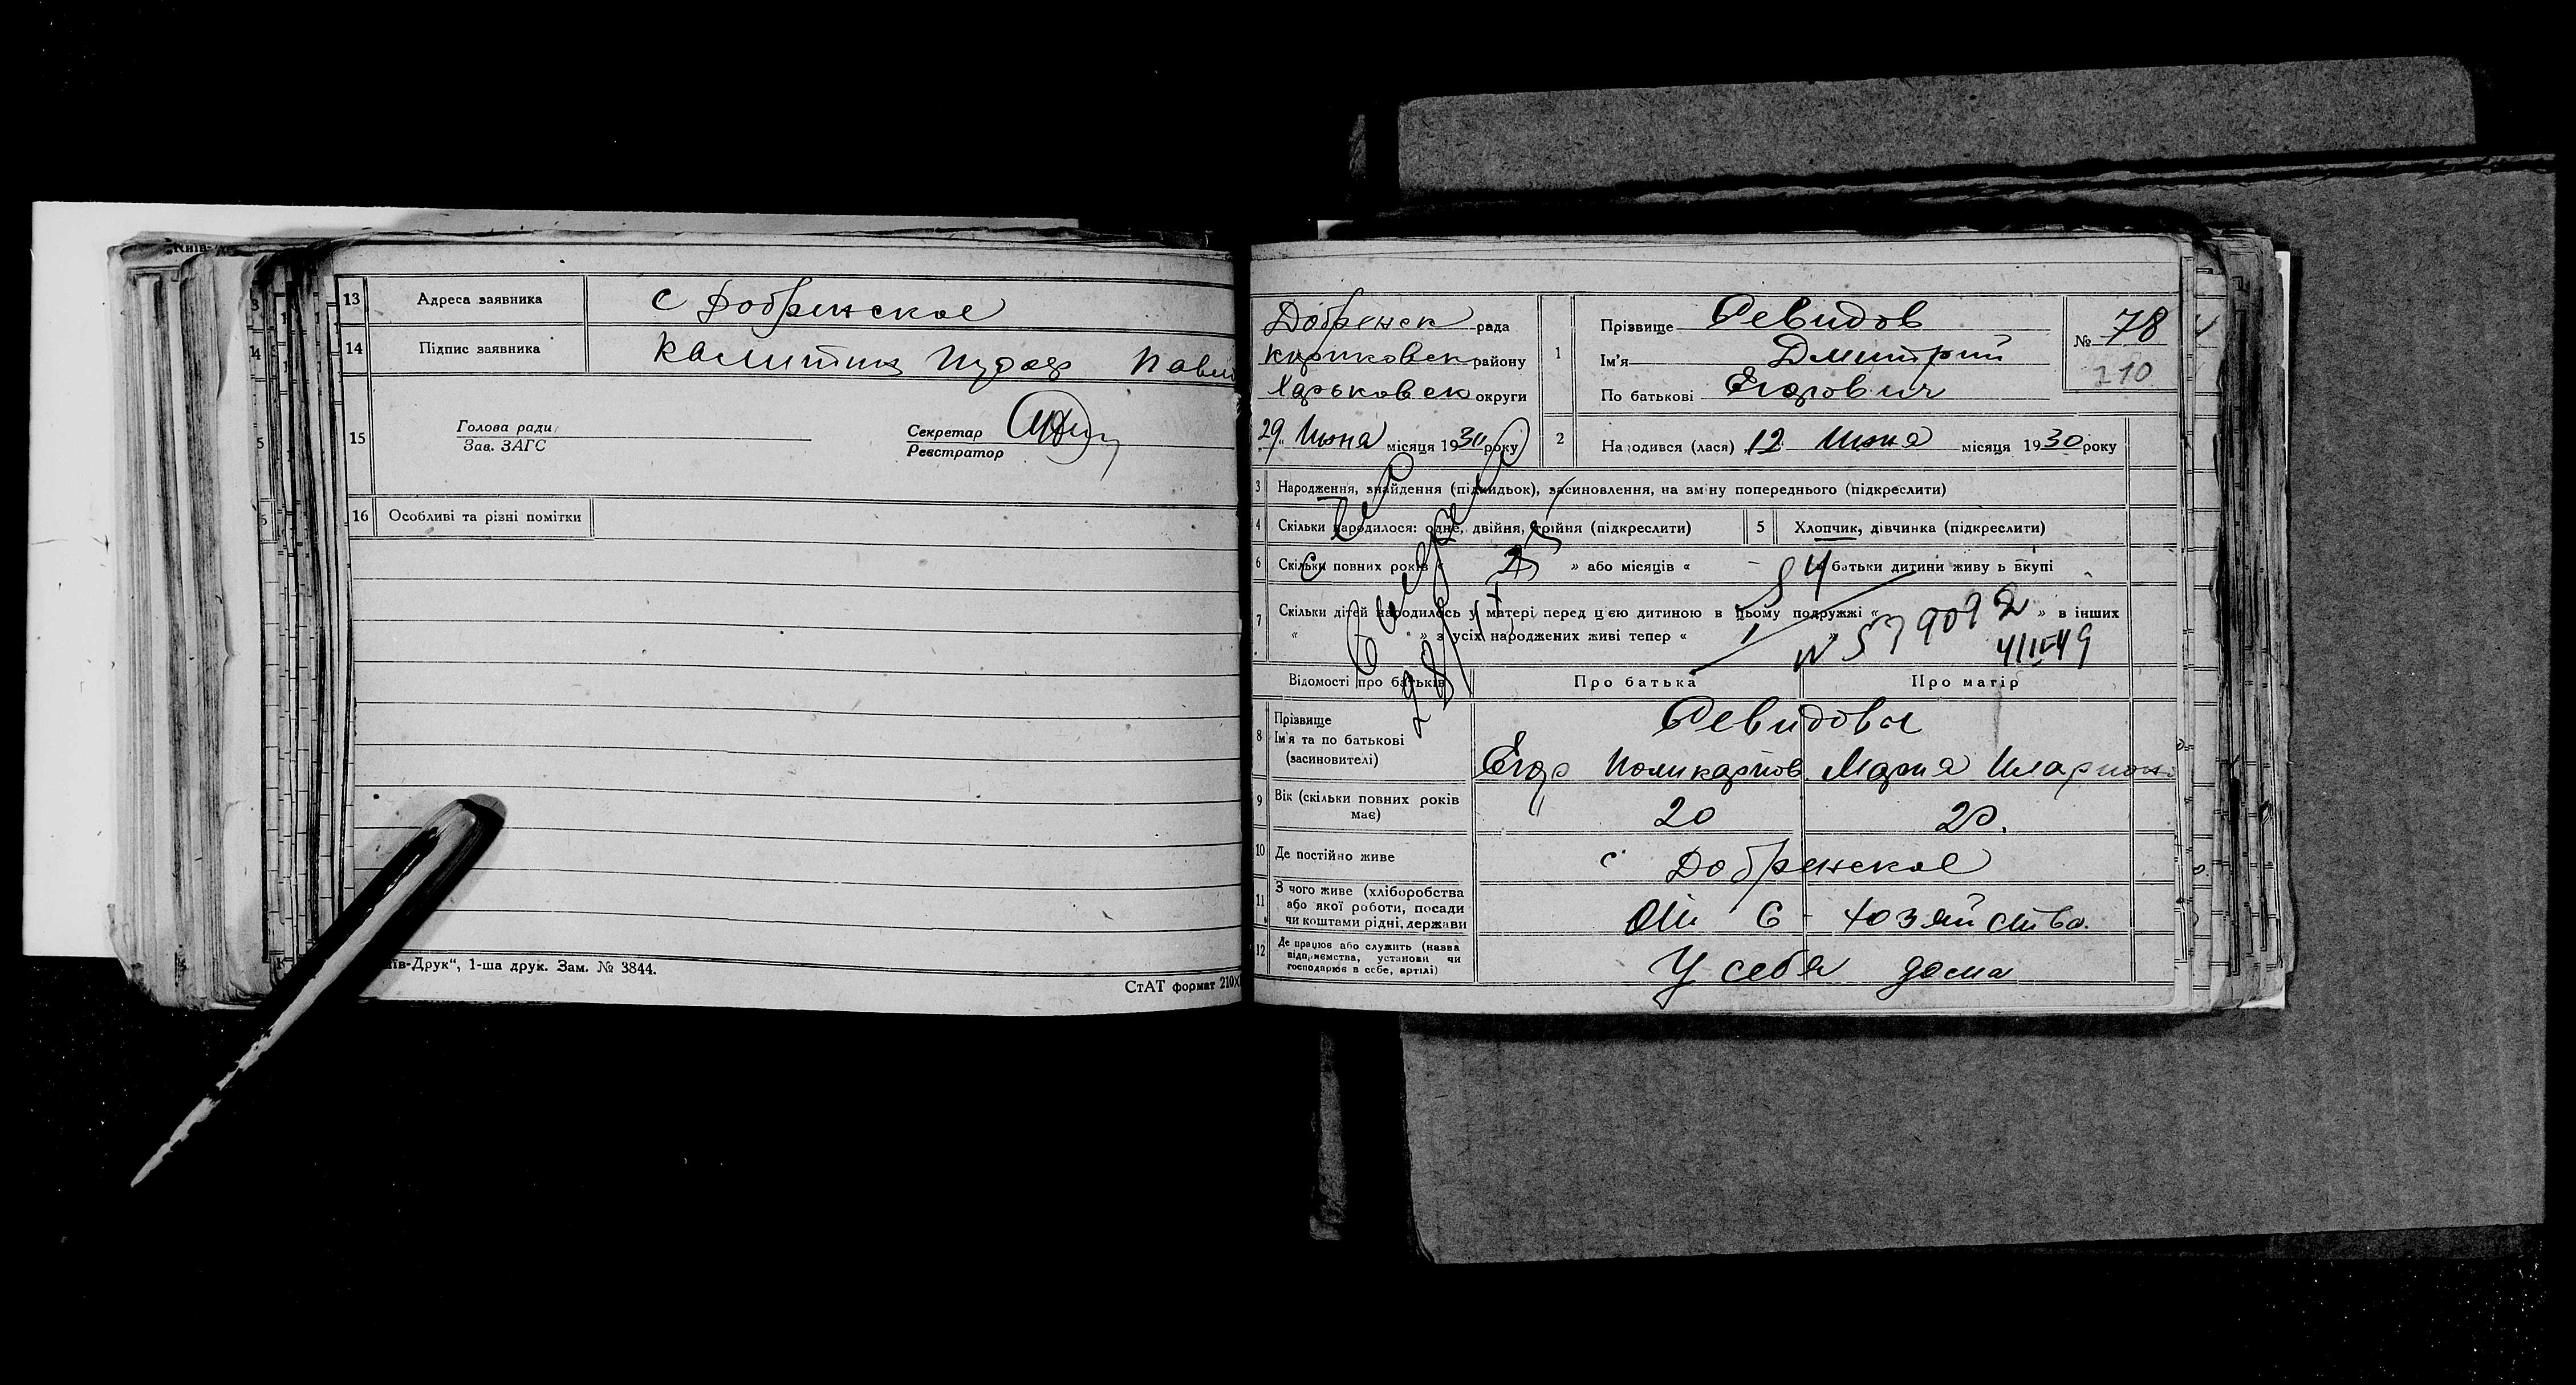 13 Адреса заявника с Добренское
14 Підпис заявника Калитин Павло
15 Голова ради
Зав. ЗАГС
Секретар
Реєстратор
16 Особливі та різні помітки
їв-Друк“, 1-ша друк. Зам. № 3844.
СтАТ формат 210Х
Добренск рада
району
Харьковск округи
29 Июня місяця 1930 року
1 Прізвище Девидов
Ім'я Дмитрий
По батькові Егорович
№ 78
210
2 Народився (лася) 12 Июня місяця 1930 року
3 Народження, знайдення (підкидьок), засиновлення, на зміну попереднього (підкреслити)
4 Скільки народилося: одне, двійня, трійня (підкреслити) 5 Хлопчик, дівчинка (підкреслити)
6 Скільки повних років « 2 » або місяців « - » батьки дитини живуть вкупі
7 Скільки дітей народилось у матері перед цією дитиною в цьому подружжі « » в інших
« » з усіх народжених живі тепер « 1 »
N 579092
4/III-49
Відомості про батьків Про батька Про матір
8 Прізвище
Ім'я та по батькові
(засновителі)
Девидовы
Егор Поликарпов Мария Иларионо
9 Вік (скільки повних років
має)
20 20.
10 Де постійно живе с Добренское
11 З чого живе (хліборобства
або якої роботи, посади
чи коштами рідні, держави
От С-хозяйства.
12 Де працює або служить (назва
підприємства, установи чи
господарює в себе, артілі)
У себя дома